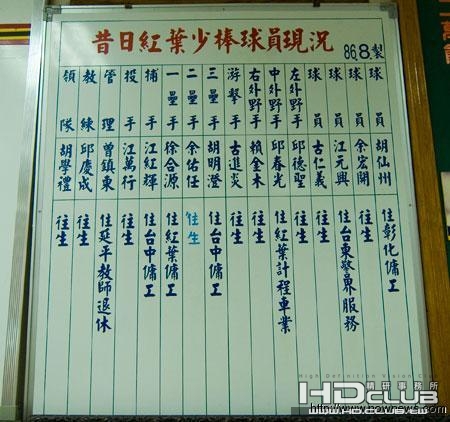 昔日紅葉少棒球員現況 86.8.製
領隊 胡學禮 往生
教練 邱慶成 往生
管理 曾鎮東 住延平教師退休
投手 江萬行 往生
捕手 江紅輝 住台中傭工
一壘手 徐合源 住紅葉傭工
二壘手 余佑任 往生
三壘手 胡明澄 住台中傭工
游擊手 古進炎 往生
右外野手 賴金木 往生
中外野手 邱春光 住紅葉計程車業
左外野手 邱德聖 往生
球員 古仁義 往生
球員 江元興 住台東警界服務
球員 余宏開 往生
球員 胡仙州 住彰化傭工
High Definition Vision Club
HDCLUB 精研事務所